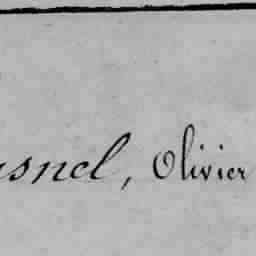 snel, Olivier